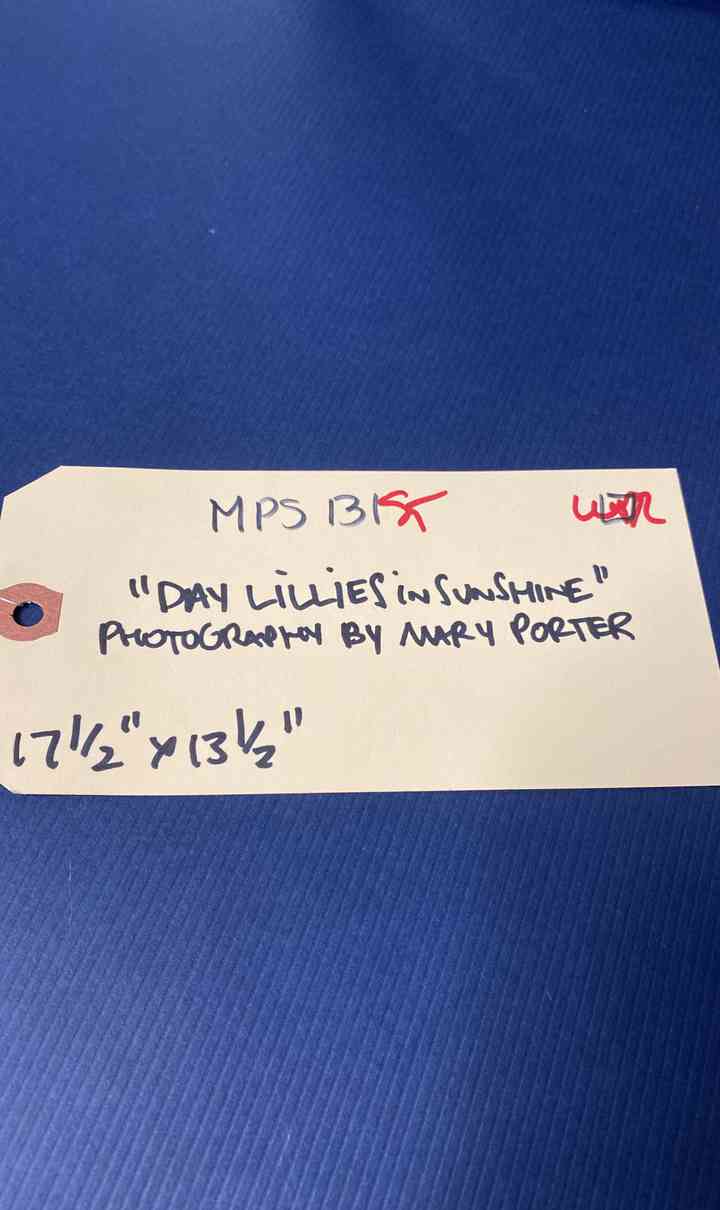 MPS 131
"DAY LILLIES IN SUNSHINE"
PHOTOGRAPHY BY MARY PORTER
17 1/2" x 13 1/2"